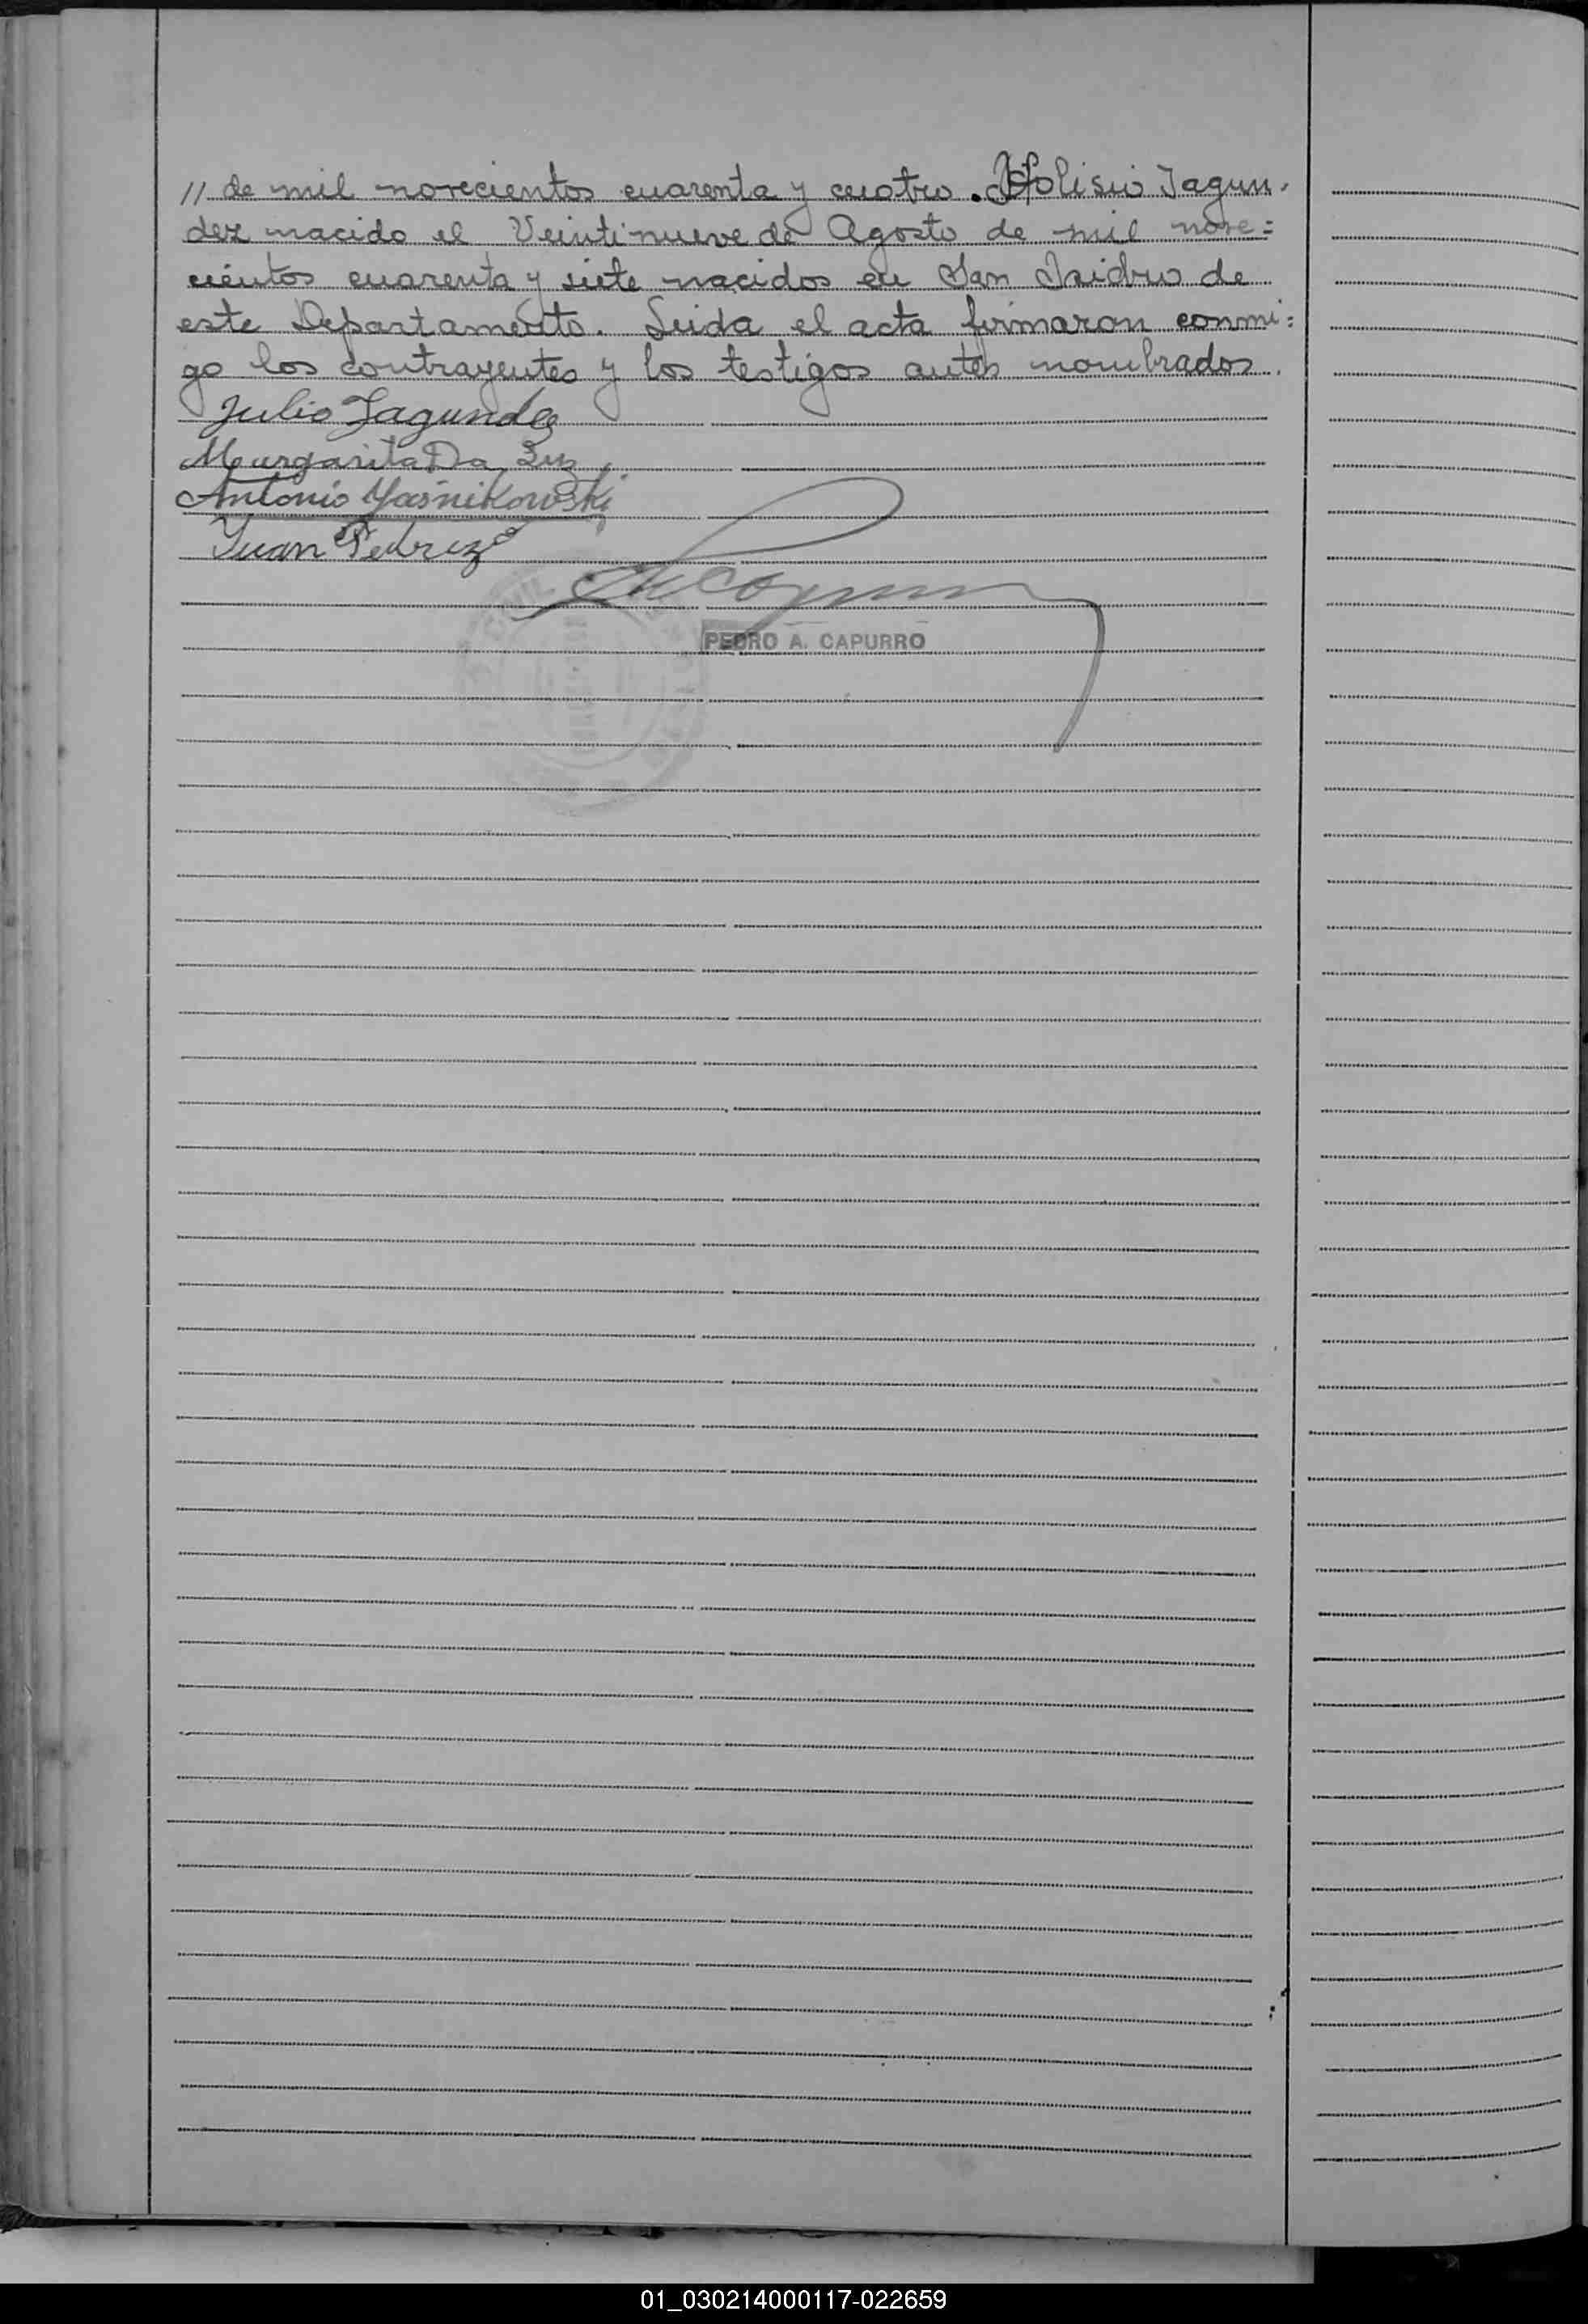 // de mil novecientos cuarenta y cuatro. Jagun-
dez nacido el Veintinueve de Agosto de mil nove=
cientos cuarenta y siete nacidos en San Isidro de
este Departamento. Leida el acta firmaron conmi=
go los contrayentes y los testigos antes nombrados.
Julio Jagundez
Margarita Da Luz
Antonio Yasnikowski
Juan Pedrizo
PEDRO A. CAPURRO
01_030214000117-022659